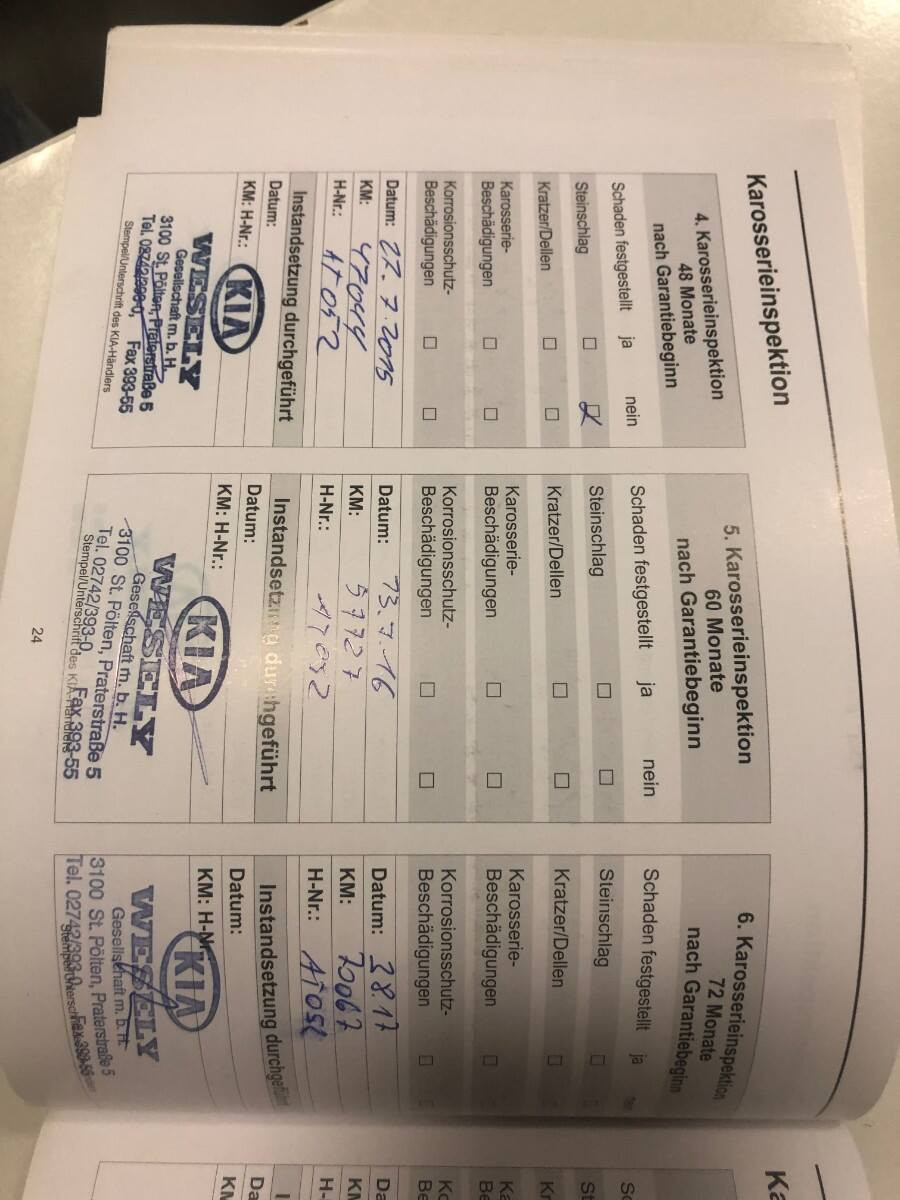 Karosserieinspektion
4. Karosserieinspektion
48 Monate
nach Garantiebeginn
Schaden festgestellt ja nein
Steinschlag ☐ ☒
Kratzer/Dellen ☐ ☐
Karosserie-
Beschädigungen ☐ ☐
Korrosionsschutz-
Beschädigungen ☐ ☐
Datum: 27.7.2015
KM: 47044
H-Nr.: AT052
Instandsetzung durchgeführt
Datum:
KM: H-Nr.:
KIA
WESELY
Gesellschaft m. b. H.
3100 St. Pölten, Praterstraße 5
Tel. 02742/393-0, Fax 393-55
Stempel/Unterschrift des KIA-Händlers
5. Karosserieinspektion
60 Monate
nach Garantiebeginn
Schaden festgestellt ja nein
Steinschlag ☐ ☐
Kratzer/Dellen ☐ ☐
Karosserie-
Beschädigungen ☐ ☐
Korrosionsschutz-
Beschädigungen ☐ ☐
Datum: 13.7.16
KM: 57727
H-Nr.: AT052
Instandsetzung durchgeführt
Datum:
KM: H-Nr.:
KIA
WESELY
Gesellschaft m. b. H.
3100 St. Pölten, Praterstraße 5
Tel. 02742/393-0 Fax 393-55
Stempel/Unterschrift des KIA-Händlers
6. Karosserieinspektion
72 Monate
nach Garantiebeginn
Schaden festgestellt ja
Steinschlag ☐ ☐
Kratzer/Dellen ☐ ☐
Karosserie-
Beschädigungen ☐ ☐
Korrosionsschutz-
Beschädigungen ☐ ☐
Datum: 3.8.17
KM: 70067
H-Nr.: AT052
Instandsetzung durchgeführt
Datum:
KM: H-Nr.
KIA
WESELY
Gesellschaft m. b. H.
3100 St. Pölten, Praterstraße 5
Tel. 02742/393-0 Fax 393-55
24
Ka
Sc
St
Kr
Ka
Be
Ko
Be
Da
KM
H-
I
Da
KM